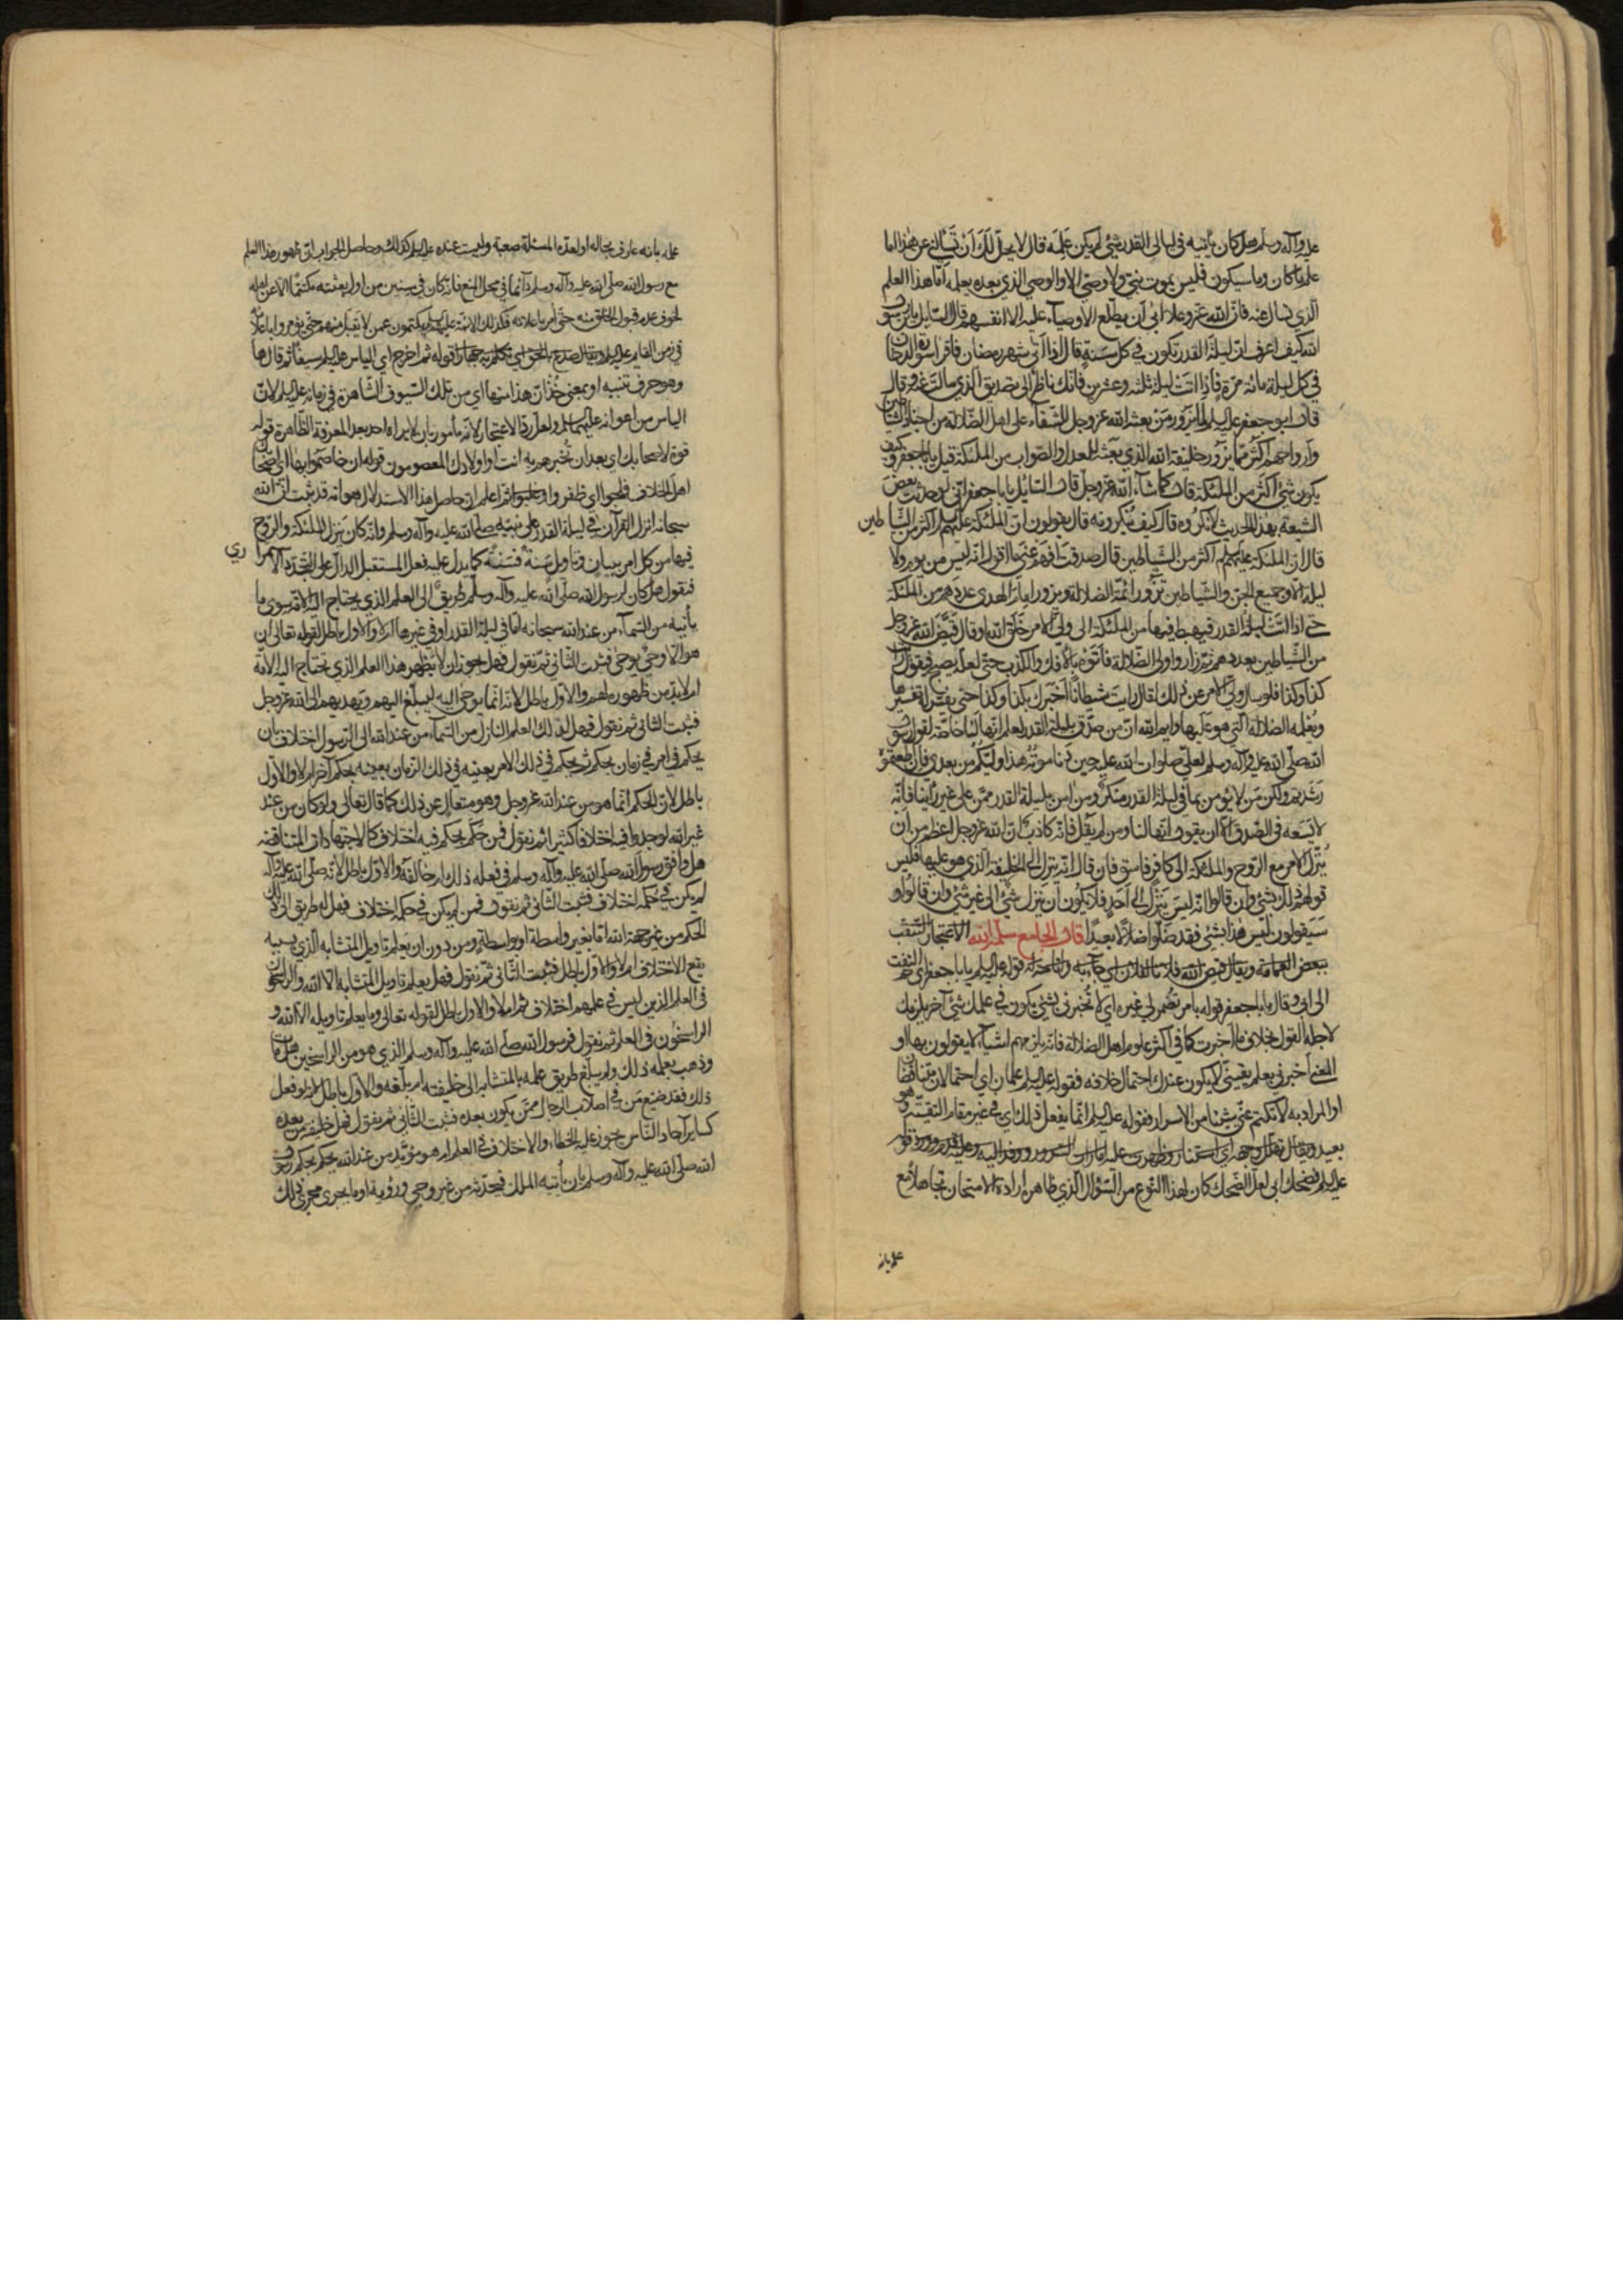 عليه وآله وسلم هل كان يأتيه في ليالي القدر شئ لم يكن علمه قال لا يحل لك ان تسألني عن هذا اما
علم ما كان وما سيكون فليس يموت نبي ولا وصي الا والوصي الذي بعده يعلمه اما هذا العلم
الذي تسأل عنه فان الله عز وعلا ابى ان يطلع الاوصياء عليه الا انفسهم قال السايل يا بن رسول
الله كيف اعرف ان ليلة القدر تكون في كل سنة قال اذا اتى شهر رمضان فاقرا سورة الدخان
في كل ليلة مائة مرة فاذا اتت ليلة ثلثه وعشرين فانك ناظر الى تصديق الذي سالت عنه وقال
قال ابو جعفر عليه السلم لما يزور من بعثه الله عز وجل للشقاء على اهل الضلالة من اجناد الشياطين
وارواحهم اكثر مما يزور خليفة الله الذي بعثه للعدل والصواب من الملئكة قيل يا با جعفر وكيف
يكون شئ اكثر من الملئكة قال كما شاء الله عز وجل قال السايل يا با جعفر اني لو حدثت بعض
الشيعة بهذا الحديث لانكروه قال كيف ينكرونه قال يقولون ان الملئكة عليهم السلم اكثر من الشياطين
قال ان الملئكة عليهم السلم اكثر من الشياطين قال صدقت افهم عني ما اقول انه ليس من يوم ولا
ليلة الا وجميع الجن والشياطين تزور ائمة الضلالة ويزور امام الهدى عددهم من الملئكة
حتى اذا اتت ليلة القدر فيهبط فيها من الملئكة الى ولي الامر خلق الله او قال قيض الله عز وجل
من الشياطين بعددهم ثم زاروا ولي الضلالة فاتوه بالافك والكذب حتى لعله يصبح فيقول رأيت
كذا وكذا فلو سال ولي الامر عن ذلك لقال رايت شيطانا اخبرك بكذا وكذا حتى يفسر له تفسيرها
ويعلمه الضلالة التي هو عليها وايم الله ان من صدق بليلة القدر ليعلم انها لنا خاصة لقول رسول
الله صلى الله عليه وآله وسلم لعلي صلوات الله عليه حين دنا موته هذا وليكم من بعدي فان اطعتموه
رشدتم ولكن من لا يؤمن بما في ليلة القدر منكر ومن امن بليلة القدر ممن على غير راينا فانه
لا يسعه في الصدق الا ان يقول انها لنا ومن لم يقل فانه كاذب ان الله عز وجل اعظم من ان
ينزل الامر مع الروح والملئكة الى كافر فاسق فان قال انه ينزل الى الخليفة الذي هو عليها فليس
قولهم ذلك بشئ وان قالوا انه ليس ينزل الى احد فلا يكون ان ينزل شئ الى غير شئ وان قالوا و
سيقولون ليس هذا بشئ فقد ضلوا ضلالا بعيدا قال الجامع سلمه الله الاعتجار التنقب
ببعض العمامة ويقال قيض الله فلانا لفلان اي جاء به واتاحه له قوله عليه السلم يا با جعفر اي ثم التفت
الى ابي وقال يا با جعفر قوله بامر تضمر لي غيره اي لا تخبرني بشئ يكون في علمك شئ آخر يلزمك
لاجله القول بخلاف ما اخبرت كما في اكثر علوم اهل الضلالة فانه يلزمهم اشياء لا يقولون بها او
المعنى اخبرني بعلم يقيني لا يكون عندك احتمال خلافه فقوله عليه السلم علمان اي احتمالان متناقضان
او المراد به لا تكتم عني شيئا من الاسرار فقوله عليه السلم انما يفعل ذلك اي في غير مقام التقية وهو
بعيد ويقال تهلل وجهه اي استنار وظهرت عليه امارات السرور ووفد اليه وعليه قدم وورد قوله
عليه السلم فضحك ابي لعل الضحك كان لهذا النوع من السؤال الذي ظاهره ارادة الامتحان تجاهلا مع
علمه بانه
علمه بانه عارف بحاله او لعده المسئلة صعبة وليست عنده عليه السلم كذلك وحاصل الجواب ان ظهور هذا العلم
مع رسول الله صلى الله عليه وآله وسلم دائما في محل المنع فانه كان في سنين من اول بعثته مكتتما الا عن اهله
لخوف عدم قبول الخلق منه حتى امر باعلانه فكذلك الائمة عليهم السلم يكتمون عمن لا يقبل منهم حتى يؤمروا باعلانه
في زمن القايم عليه السلم ويقال صدع بالحق اي تكلم به جهارا قوله ثم اخرج اي الياس عليه السلم سيفا ثم قال ها
وهو حرف تنبيه او بمعنى خذ ان هذا منها اي من تلك السيوف الشاهرة في زمانه عليه السلم لان
الياس من اعوانه عليهما السلم ولعل رد الاعتجار لانه مأمور بان لا يراه احد بعد المعرفة الظاهرة قوله
قوة لاصحابك اي بعد ان تخبرهم به انت او اولادك المعصومون قوله ان خاصموا بها اي اصحابك
اهل الخلاف فلجوا اي ظفروا وغلبوا ثم اعلم ان حاصل هذا الاستدلال هو انه قد ثبت ان الله
سبحانه انزل القرآن في ليلة القدر على نبيه صلى الله عليه وآله وسلم وانه كان ينزل الملئكة والروح
فيها من كل امر ببيان وتاويل سنة فسنة كما يدل عليه فعل المستقبل الدال على التجدد الاستمراري
فنقول هل كان لرسول الله صلى الله عليه وآله وسلم طريق الى العلم الذي يحتاج اليه الامة سوى ما
يأتيه من السماء من عند الله سبحانه اما في ليلة القدر او في غيرها ام لا والاول باطل لقوله تعالى ان
هو الا وحي يوحى فثبت الثاني ثم نقول فهل يجوز ان لا يظهر هذا العلم الذي تحتاج اليه الامة
ام لا بد من ظهوره لهم والاول باطل لانه انما يوحى اليه ليبلغ اليهم ويهديهم الى الله عز وجل
فثبت الثاني ثم نقول فهل لذلك العلم النازل من السماء من عند الله الى الرسول اختلاف بان
يحكم في امر في زمان بحكم ثم يحكم في ذلك الامر بعينه في ذلك الزمان بعينه بحكم آخر ام لا والاول
باطل لان الحكم انما هو من عند الله عز وجل وهو متعال عن ذلك كما قال تعالى ولو كان من عند
غير الله لوجدوا فيه اختلافا كثيرا ثم نقول فمن حكم بحكم فيه اختلاف كالاجتهادات المتناقضة
هل وافق رسول الله صلى الله عليه وآله وسلم في فعله ذلك ام خالفه والاول باطل لانه صلى الله عليه وآله
لم يكن في حكمه اختلاف فثبت الثاني ثم نقول فمن لم يكن في حكمه اختلاف فهل له طريق الى ذلك
الحكم من غير جهة الله اما بغير واسطة او بواسطة ومن دون ان يعلم تاويل المتشابه الذي بسببه
يقع الاختلاف ام لا والاول باطل فثبت الثاني ثم نقول فهل يعلم تاويل المتشابه الا الله والراسخون
في العلم الذين ليس في علمهم اختلاف ثم ام لا والاول باطل لقوله تعالى وما يعلم تاويله الا الله و
الراسخون في العلم ثم نقول فرسول الله صلى الله عليه وآله وسلم الذي هو من الراسخين هل مات
وذهب بعلمه ذلك ولم يبلغ طريق علمه بالمتشابه الى خليفته ام بلغه والاول باطل لانه لو فعل
ذلك فقد ضيع من في اصلاب الرجال ممن يكون بعده فثبت الثاني ثم نقول فهل خليفته من بعده
كساير آحاد الناس يجوز عليه الخطاء والاختلاف في العلم ام هو مؤيد من عند الله يحكم بحكم رسول
الله صلى الله عليه وآله وسلم بان يأتيه الملك فيحدثه من غير وحي ورؤية او ما يجري مجرى ذلك